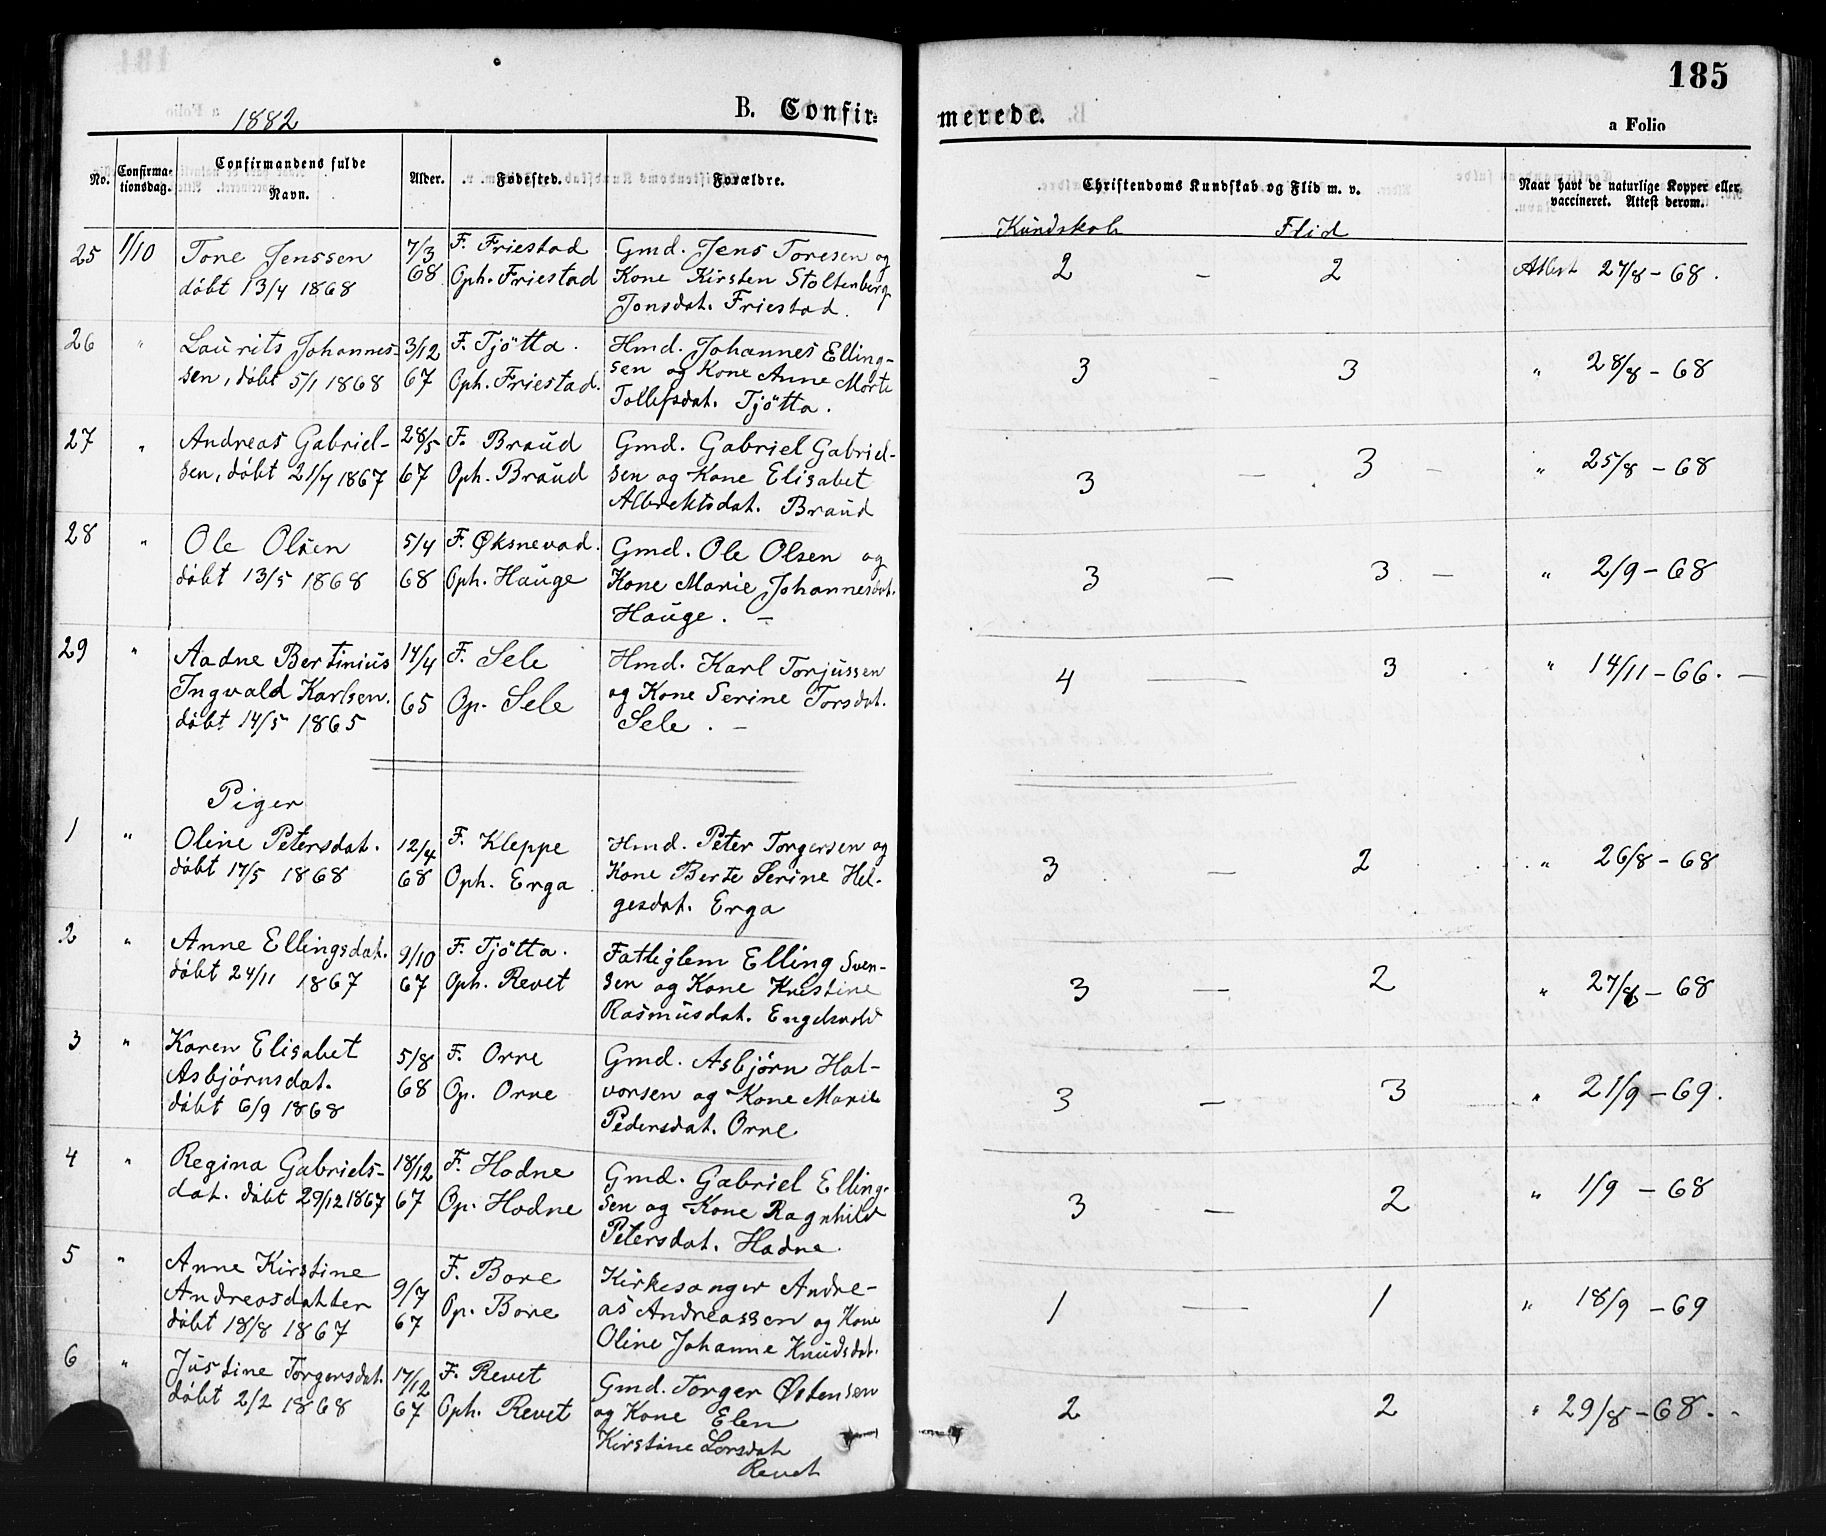 185
1882 B. Confir= merede. a Folio
No. Confirma- tionsdag. Confirmandens fulde Navn. Alder. Fødested. Forældre. Christendoms Kundskab og Flid m. v. Naar havt de naturlige Kopper eller vaccineret. Attest derom.
Kundskab Flid
25 1/10 Tore Jenssen 7/3 F. Friestad Gmd. Jens Toresen og 2 - 2 Attest 27/8 - 68.
døbt 13/4 1868 68 Oph. Friestad Kone Kirsten Stoltenberg
Jonsdat. Friestad.
26 " Laurits Johannes- 3/12 F. Tjøtta. Hmd. Johannes Elling- 3 - 3 " 28/8 - 68
sen, døbt 5/1 1868 67 Oph. Friestad. sen og Kone Anne Marte
Tollefsdat. Tjøtta.
27 " Andreas Gabriel- 28/5 F. Braud Gmd. Gabriel Gabriel- 3 - 3 - " 25/8 - 68
sen, døbt 21/7 1867 67 Oph. Braud sen og Kone Elisabet
Albrektsdat. Braud
28 " Ole Olsen 5/4 F. Øksnevad. Gmd. Ole Olsen og 3 - 3. - " 2/9 - 68
døbt 13/5 1868 68 Oph. Hauge Kone Marie Johannesdat.
Hauge. -
29 " Aadne Bertinius 14/4 F. Sele Hmd. Karl Torjussen 4 - 3 " 14/11 - 66. -
Ingvald Karlsen. 65 Op. Sele og Kone Serine Torsdat.
døbt 14/5 1865 Sele. -
Piger
1 " Oline Petersdat. 12/4 F. Kleppe Hmd. Peter Torgersen og 3 - 2 " 26/8 - 68
døbt 17/5 1868 68 Oph. Erga Kone Berte Serine Hel-
gesdat. Erga
2 " Anne Ellingsdat. 9/10 F. Tjøtta. Fattiglem Elling Sven- 3 - 2 " 27/8 - 68
døbt 24/11 1867 67 Oph. Revet sen og Kone Kristine
Rasmusdat. Engelsvold
3 " Karen Elisabet 5/8 F. Orre Gmd. Asbjørn Hal- 3 - 3 " 21/9 - 69.
Asbjørnsdat. 68 Op. Orre vorsen og Kone Marie
døbt 6/9 1868 Pedersdat. Orre
4 " Regina Gabriels- 18/12 F. Hodne Gmd. Gabriel Elling- 3 - 2 " 1/9 - 68
dat. døbt 29/12 1867 67 Op. Hodne sen og Kone Ragnhild
Petersdat. Hodne.
5 " Anne Kirstine 9/7 F. Bore Kirkesanger Andre- 1 - 1 " 18/9 - 69
Andreasdatter 67 Op. Bore as Andreassen og Kone
døbt 18/8 1867 Oline Johanne Knudsdat.
6 " Justine Torgersdat. 17/12 F. Revet Gmd. Torger Østensen 2 2 " 29/8 - 68. -
døbt 2/2 1868 67 Oph. Revet og Kone Elen
Kirstine Lorsdat
Revet